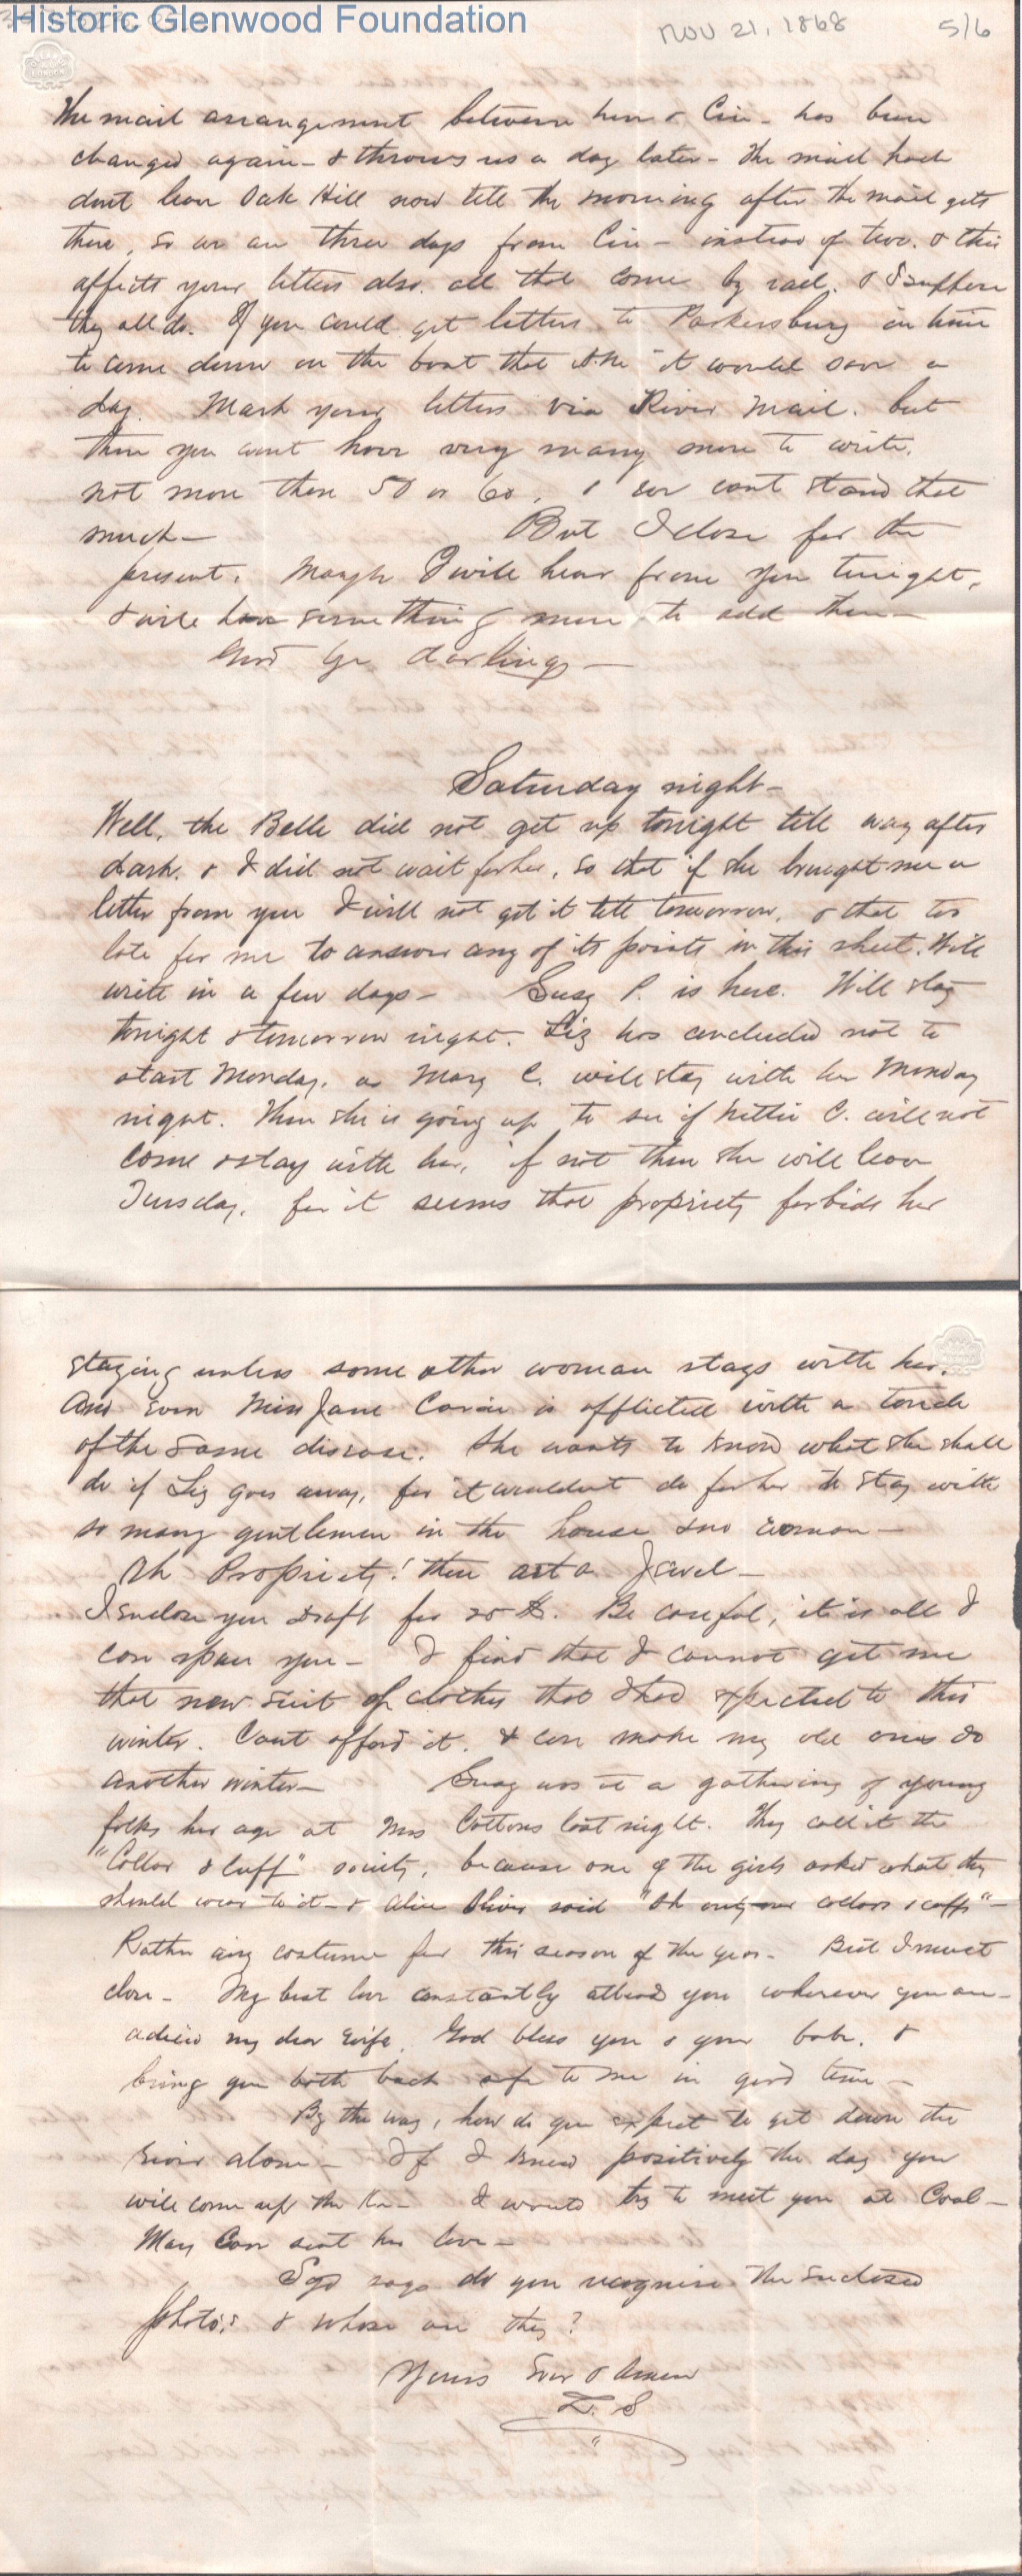 Historic Glenwood Foundation
Nov 21, 1868
5/6
LONDON
The mail arrangement between here & Cin - has been
changed again - & throws us a day later - The mail hack
dont leave Oak Hill now till the morning after the mail gets
there, so we are three days from Cin - instead of two. & this
affects your letters also. all that come by rail. & I suppose
they all do. If you could get letters to Parkersburg in time
to come down on the boat that it would save a
day. Mark your letters via River Mail. but
then you wont have very many more to write.
not more than 50 or 60, & we cant stand that
much -
But I close for the
present. Maybe I will hear from you tonight,
& will have something more to add then -
Good bye darling -
Saturday night -
Well, the Belle did not get up tonight till way after
dark. & I did not wait for her, so that if she brought me a
letter from you I will not get it till tomorrow, & that too
late for me to answer any of its points in this sheet. Will
write in a few days - Susy P. is here. Will stay
tonight & tomorrow night. Liz has concluded not to
start Monday, as Mary C. will stay with her Monday
night. Then she is going up to see if Nettie C. will not
come & stay with her, if not then she will leave
Tuesday, for it seems that propriety forbids her
staying unless some other woman stays with her.
And even Miss Jane is afflicted with a touch
of the same disease. She wants to know what she shall
do if Liz goes away, for it wouldnt do for her to stay with
so many gentlemen in the house & no woman -
Ah Propriety! thou art a Jewel -
I enclose you draft for 20 $. Be careful, it is all I
can spare you - I find that I cannot get me
that new suit of clothes that I had expected to this
winter. Cant afford it. & can make my old ones do
another winter - Susy was at a gathering of young
folks her age at Mrs Cottons last night. They call it the
"Collar & Cuff" society, because one of the girls asked what they
should wear to it - & Alice Oliver said "Oh only our collars & cuffs" -
Rather airy costume for this season of the year - But I must
close - My best love constantly attend you wherever you are -
adieu my dear wife. God bless you & your babe. &
bring you both back safe to me in good time -
By the way, how do you expect to get down the
river alone - If I knew positively the day you
will come up the Ka - I would try to meet you at Coal -
Mary sent her love -
says do you recognise the enclosed
photos? & whose are they?
Yours Ever & Amen
L. S